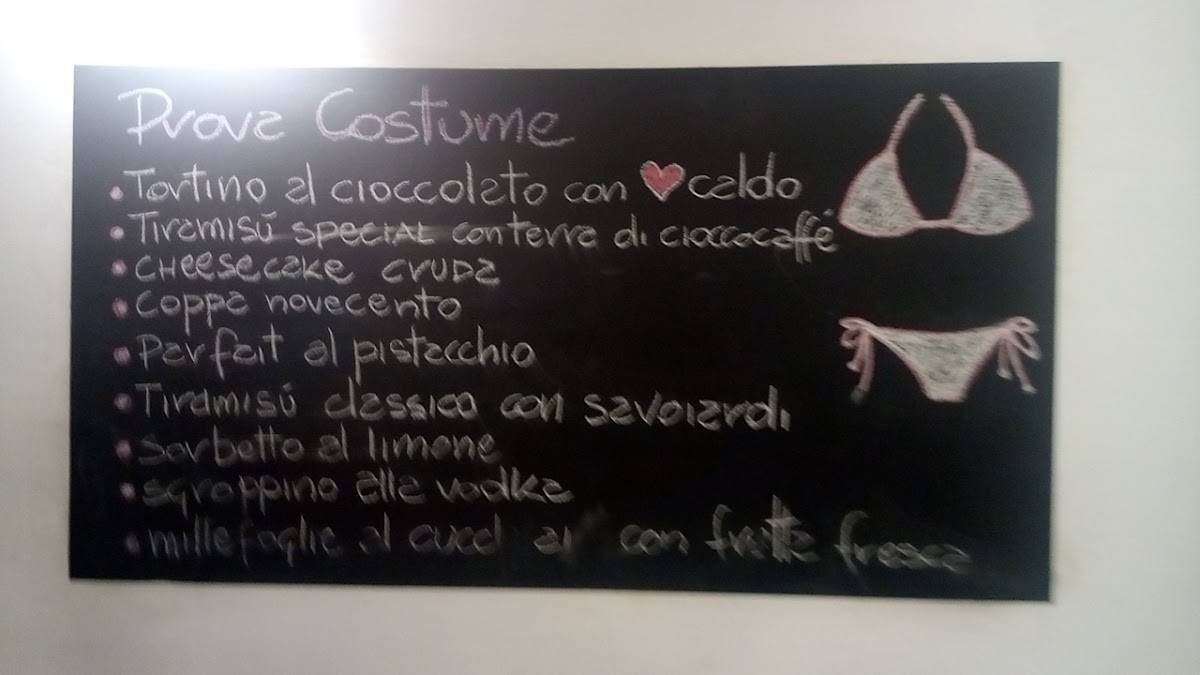 Prova Costume
• Tortino al cioccolato con ♥ caldo
• Tiramisú SPECIAL con terra di cioccocaffé
• cheesecake cruda
• coppa novecento
• parfait al pistacchio
• Tiramisú classico con savoiardi
• sorbetto al limone
• sgroppino alla vodka
• millefoglie al con frutta fresca